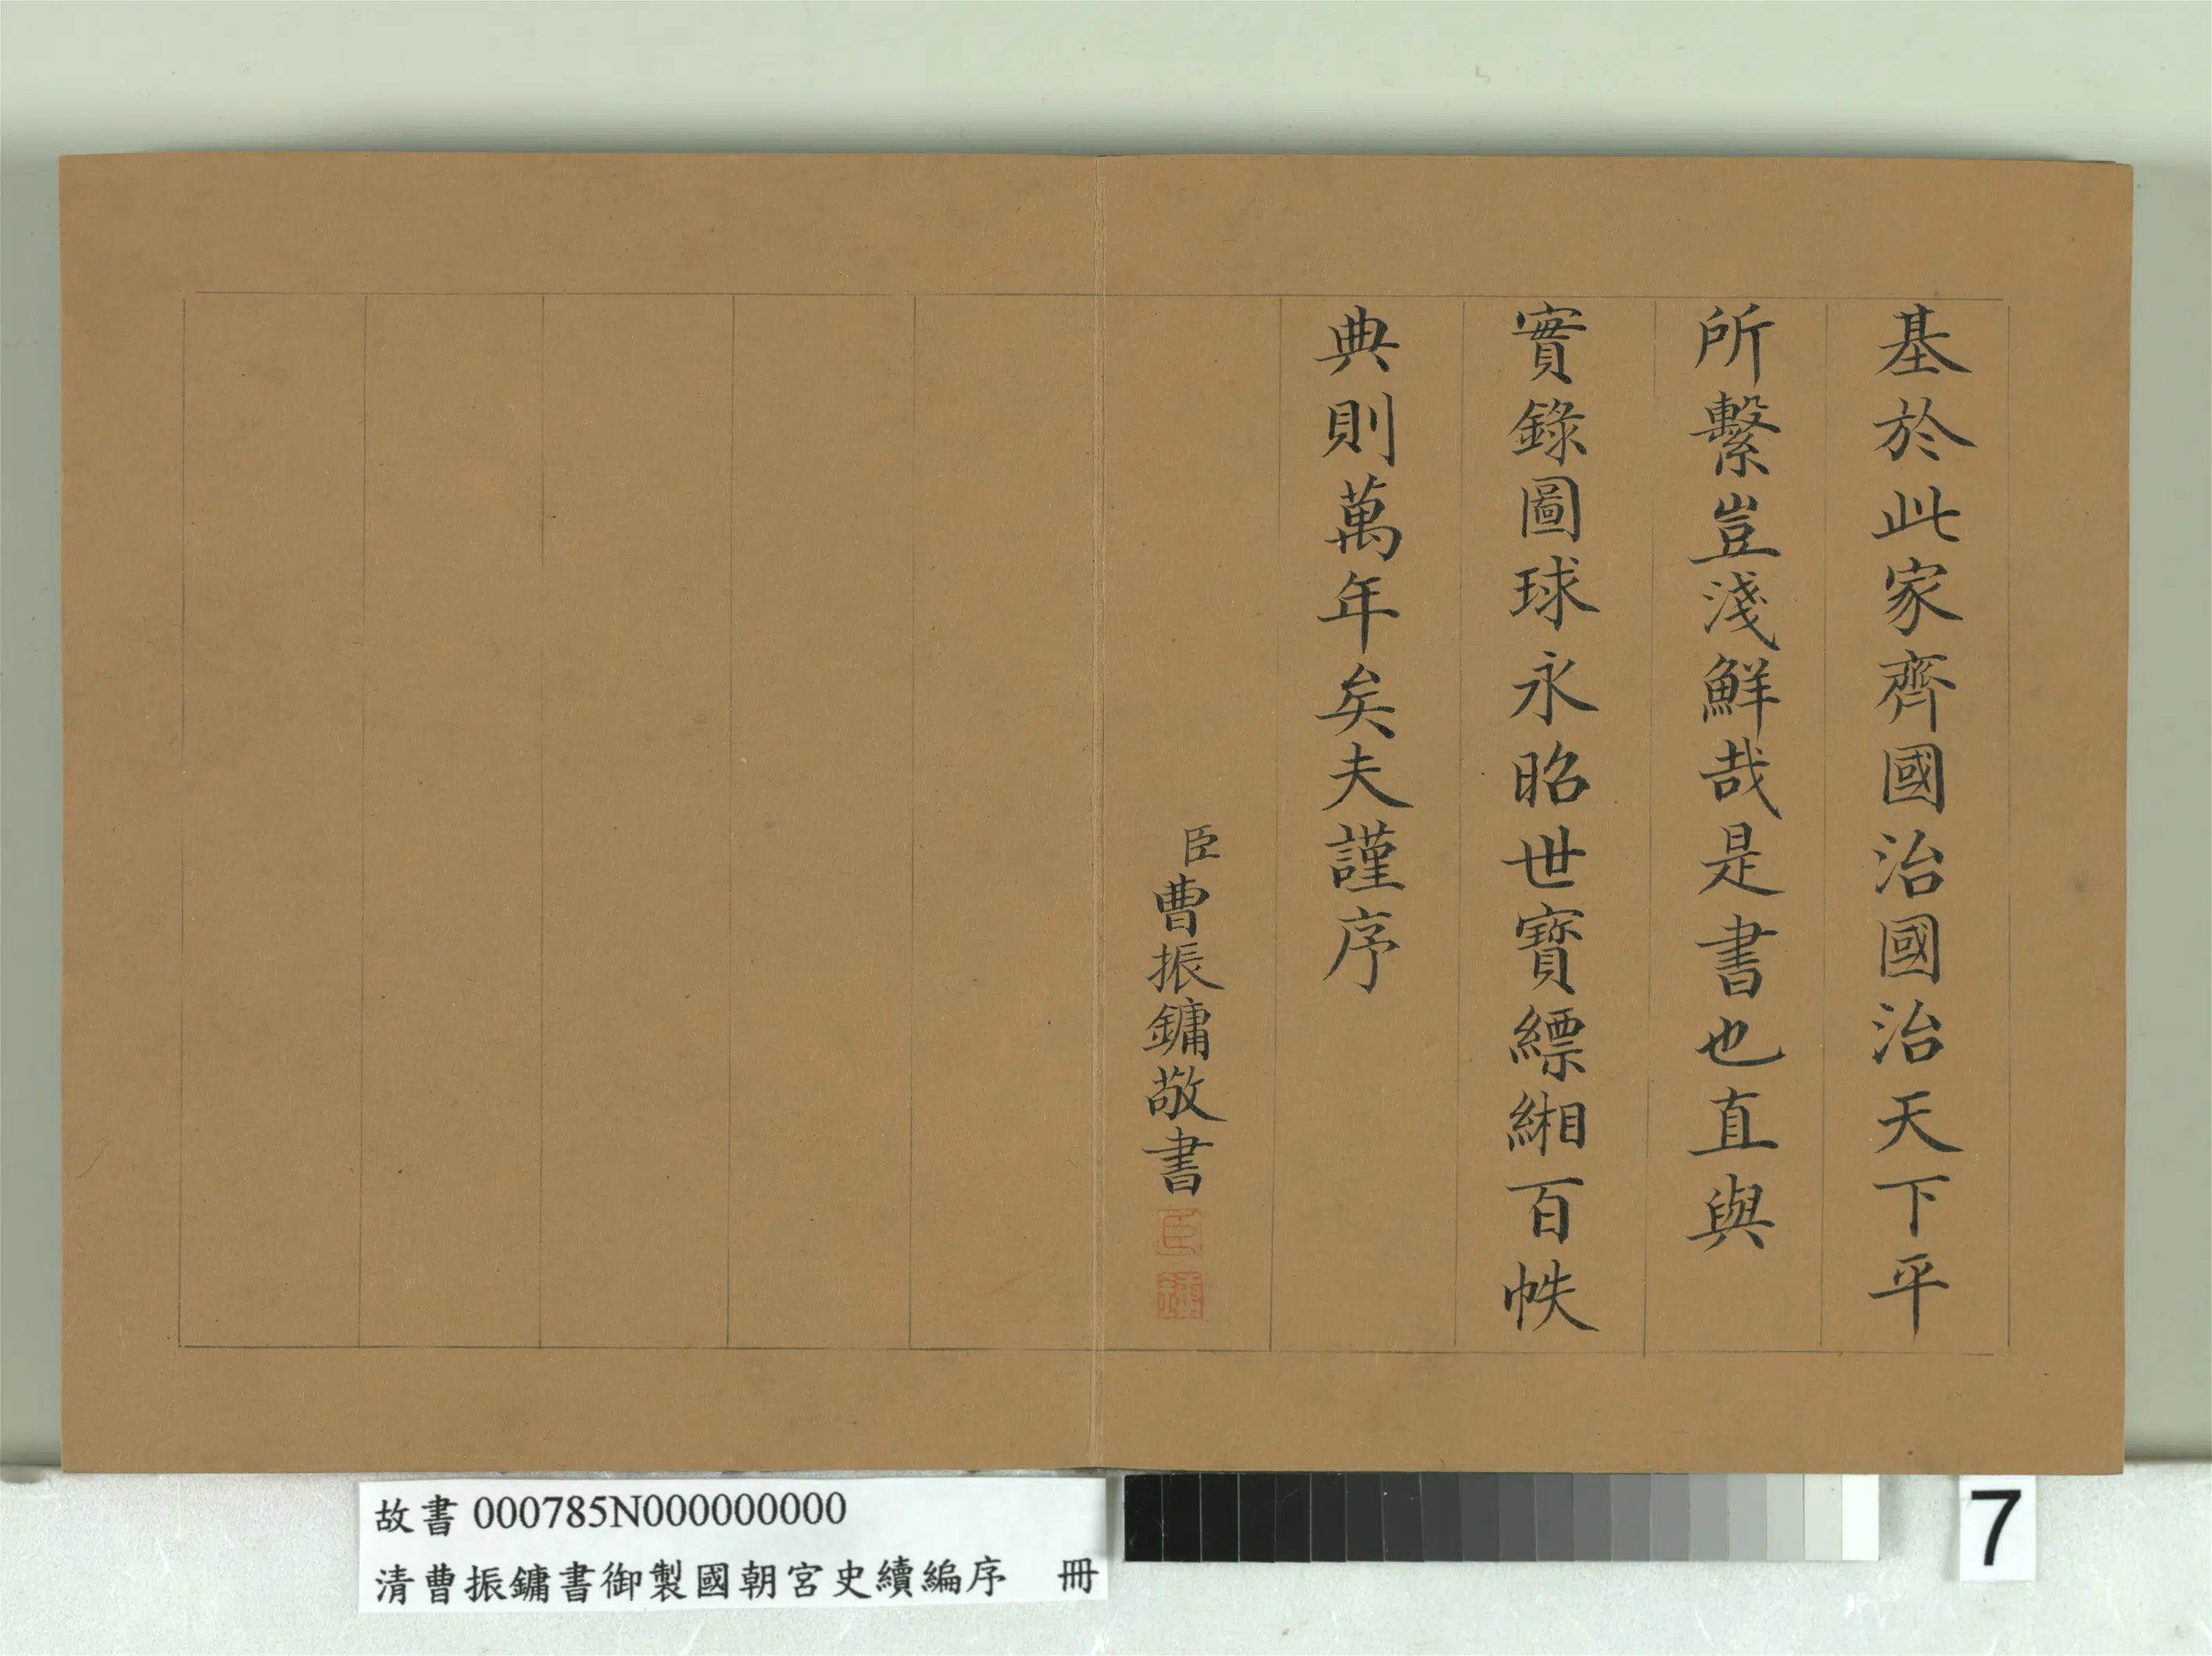 基於此家齊國治國治天下平
所繫豈淺鮮哉是書也直與
實錄圖球永昭世寶縹緗百帙
典則萬年矣夫謹序
臣曹振鏞敬書
臣
故書 000785N000000000
清曹振鏞書御製國朝宮史續編序 冊
7